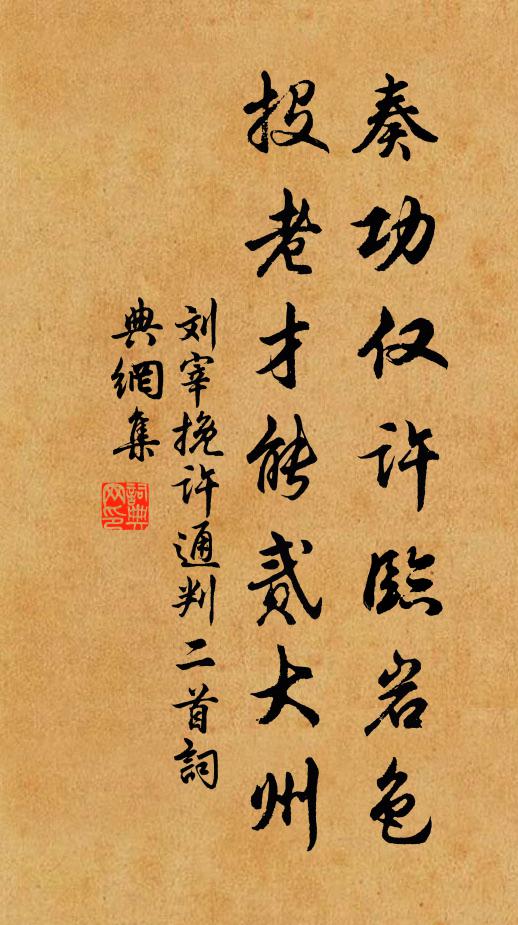 奏功仅许臨岩色
投老才能贰大州
刘宰挽许通判二首詞
典網集
詞典网印